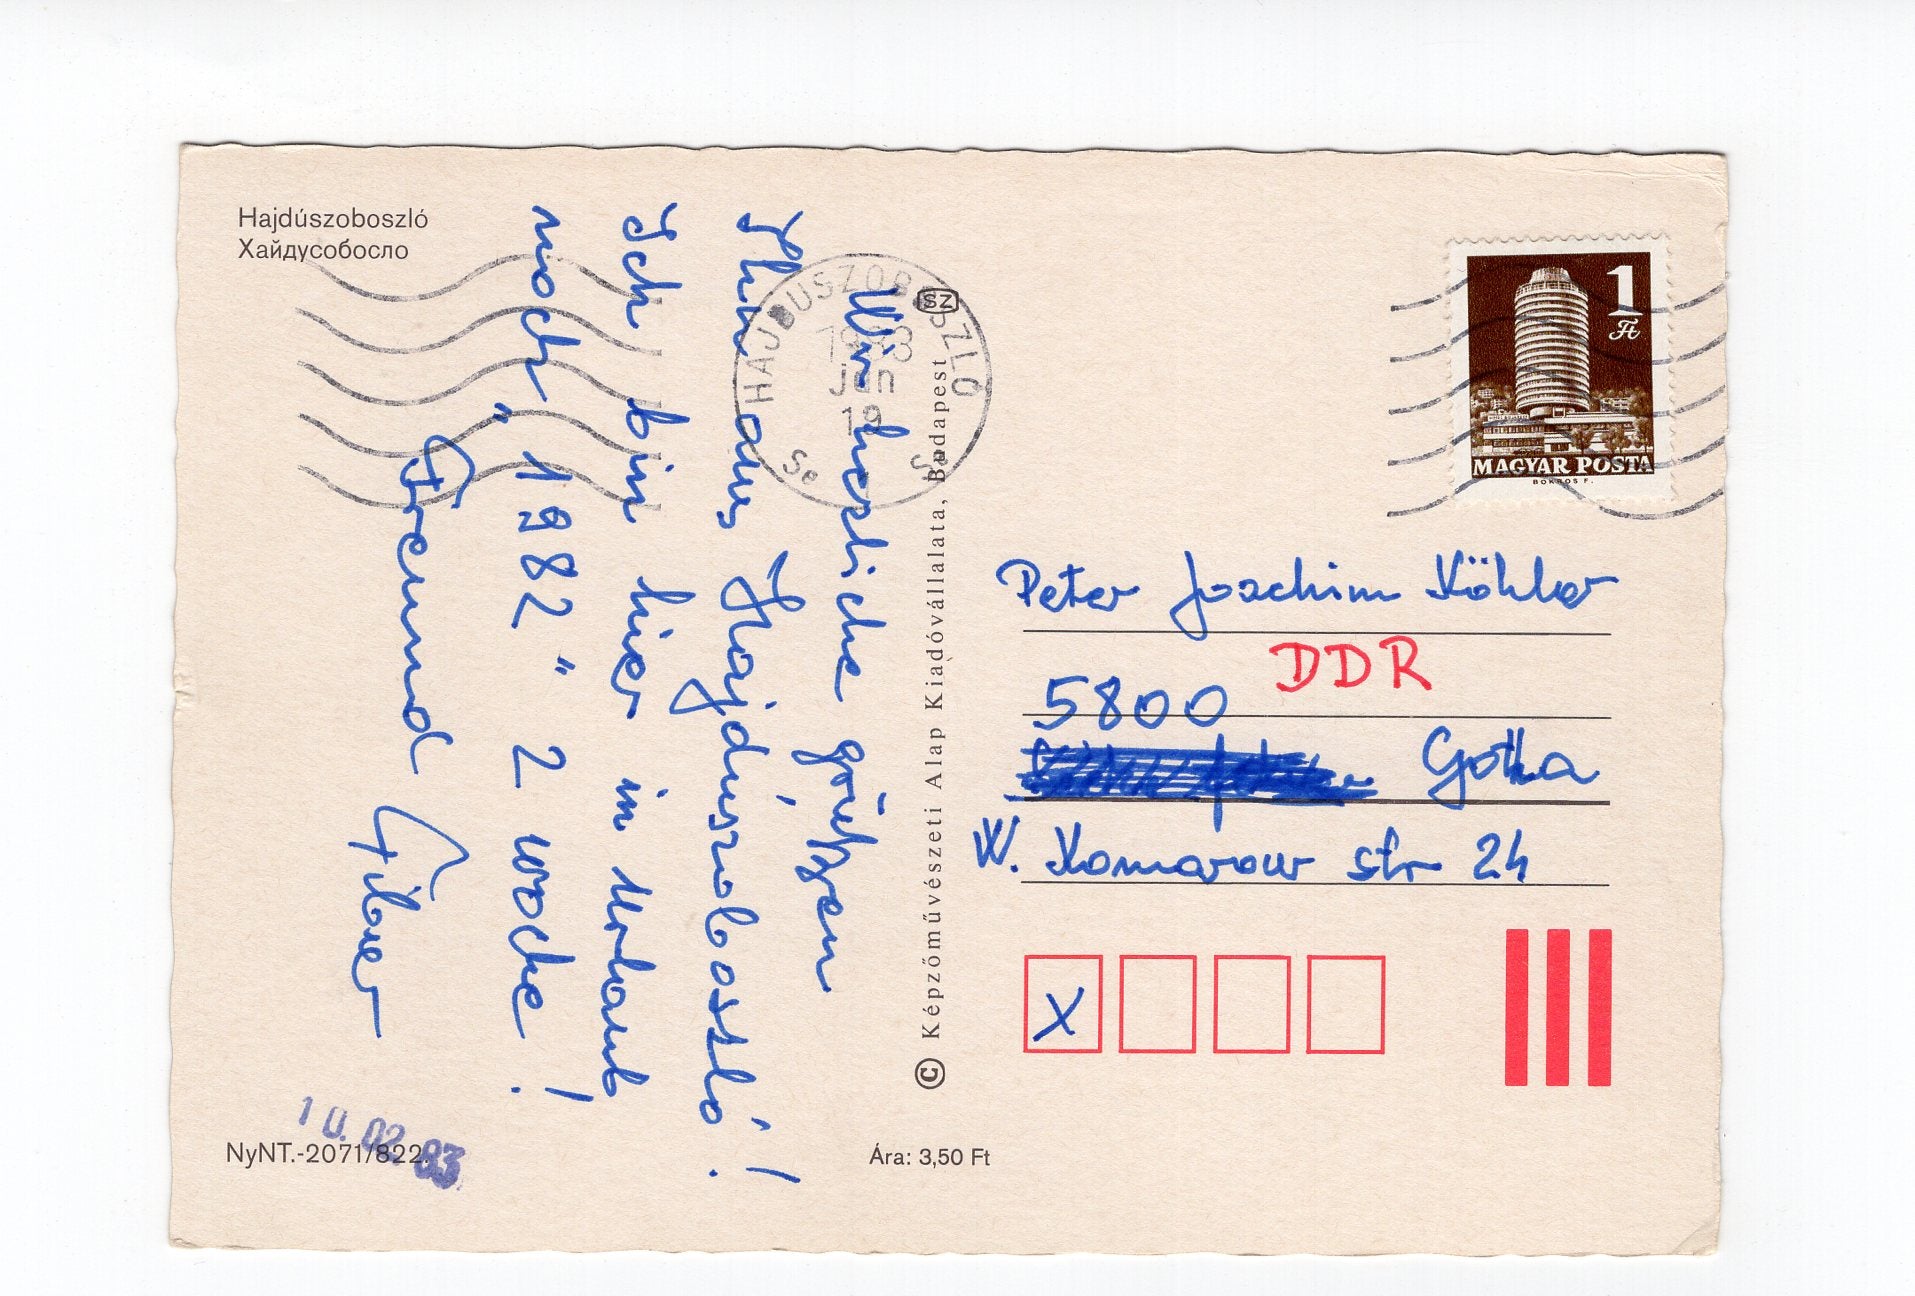 Hajdúszoboszló
Хайдусобосло
Wir herzliche grüßen
Ihn aus Hajdúszoboszló!
Ich bin hier in Urlaub
noch "1982" 2 woche!
Freund Tiber
HAJDUSZOBOSZLÓ
1983
Jan
19
SZ
© Képzőművészeti Alap Kiadóvállalata, Budapest
1
Ft
MAGYAR POSTA
BOKROS F.
Peter Joachim Köhler
DDR
5800
Gotha
W. Komarow str 24
X
10.02.83
NyNT.-2071/822.
Ára: 3,50 Ft